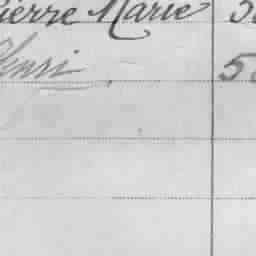 Pierre Marie
Henri 5